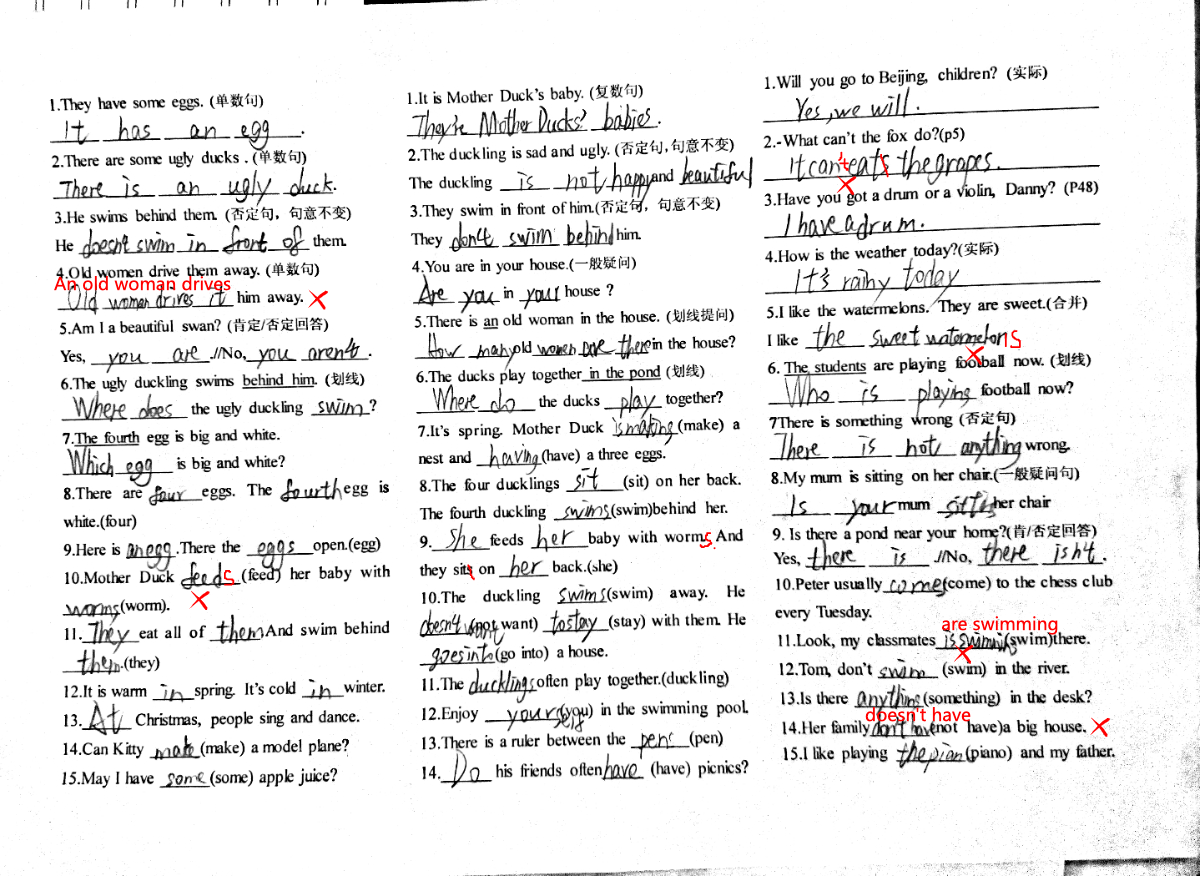 1.They have some eggs. (单数句)
It has an egg.
2.There are some ugly ducks . (单数句)
There is an ugly duck.
3.He swims behind them. (否定句，句意不变)
He doesn't swim in front of them.
4.Old women drive them away. (单数句)
An old woman drives
Old woman drives it him away.
5.Am I a beautiful swan? (肯定/否定回答)
Yes, you are .//No, you aren't .
6.The ugly duckling swims behind him. (划线)
Where does the ugly duckling swim ?
7.The fourth egg is big and white.
Which egg is big and white?
8.There are four eggs. The fourth egg is
white.(four)
9.Here is an egg .There the eggs open.(egg)
10.Mother Duck feeds (feed) her baby with
worms(worm).
11. They eat all of them And swim behind
them.(they)
12.It is warm in spring. It's cold in winter.
13. At Christmas, people sing and dance.
14.Can Kitty make (make) a model plane?
15.May I have some (some) apple juice?
1.It is Mother Duck's baby. (复数句)
They're Mother Ducks' babies.
2.The duckling is sad and ugly. (否定句,句意不变)
The duckling is not happy and beautiful
3.They swim in front of him.(否定句，句意不变)
They don't swim behind him.
4.You are in your house.(一般疑问)
Are you in your house ?
5.There is an old woman in the house. (划线提问)
How many old women are there in the house?
6.The ducks play together in the pond (划线)
Where do the ducks play together?
7.It's spring. Mother Duck is making (make) a
nest and having (have) a three eggs.
8.The four ducklings sit (sit) on her back.
The fourth duckling swims(swim)behind her.
9. She feeds her baby with worms. And
they sit on her back.(she)
10.The duckling swims(swim) away. He
doesn't want (not want) to stay (stay) with them. He
goes into (go into) a house.
11.The ducklings often play together.(duckling)
12.Enjoy yourself (you) in the swimming pool.
13.There is a ruler between the pens (pen)
14. Do his friends often have (have) picnics?
1.Will you go to Beijing, children? (实际)
Yes, we will.
2.-What can't the fox do?(p5)
It can't eats the grapes.
3.Have you got a drum or a violin, Danny? (P48)
I have a drum.
4.How is the weather today?(实际)
It's rainy today
5.I like the watermelons. They are sweet.(合并)
I like the sweet watermelons
6. The students are playing football now. (划线)
Who is playing football now?
7There is something wrong (否定句)
There is not anything wrong.
8.My mum is sitting on her chair.(一般疑问句)
Is your mum sitting her chair
9. Is there a pond near your home?(肯/否定回答)
Yes, there is .//No, there isn't.
10.Peter usually come(come) to the chess club
every Tuesday.
are swimming
11.Look, my classmates is swimming(swim)there.
12.Tom, don't swim (swim) in the river.
13.Is there anything(something) in the desk?
doesn't have
14.Her family don't have(not have)a big house.
15.I like playing the piano(piano) and my father.